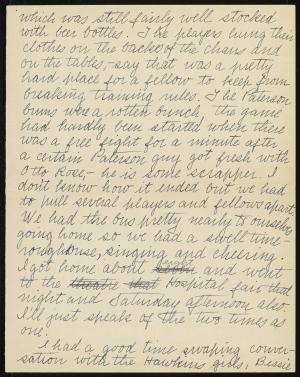 which was still fairly well stocked
with beer bottles. The players hung their
clothes on the backs of the chairs and
on the tables,- say that was a pretty
hard place for a fellow to keep from
breaking training rules. The Paterson
bums were a rotten bunch, the game
had hardly been started when there
was a free fight for a minute after
a certain Paterson guy got fresh with
Otto Rose,- he is some scrapper. I
don't know how it ended out we had
to pull several players and fellows apart.
We had the bus pretty nearly to ourselves
going home so we had a swell time-
roughhouse, singing and cheering.
I got home about and went
to the theatre that Hospital fair that
night and Saturday afternoon also.
I'll just speak of the two times as
one.
I had a good time swaping conver-
sation with the Hawkins girls, Bessie